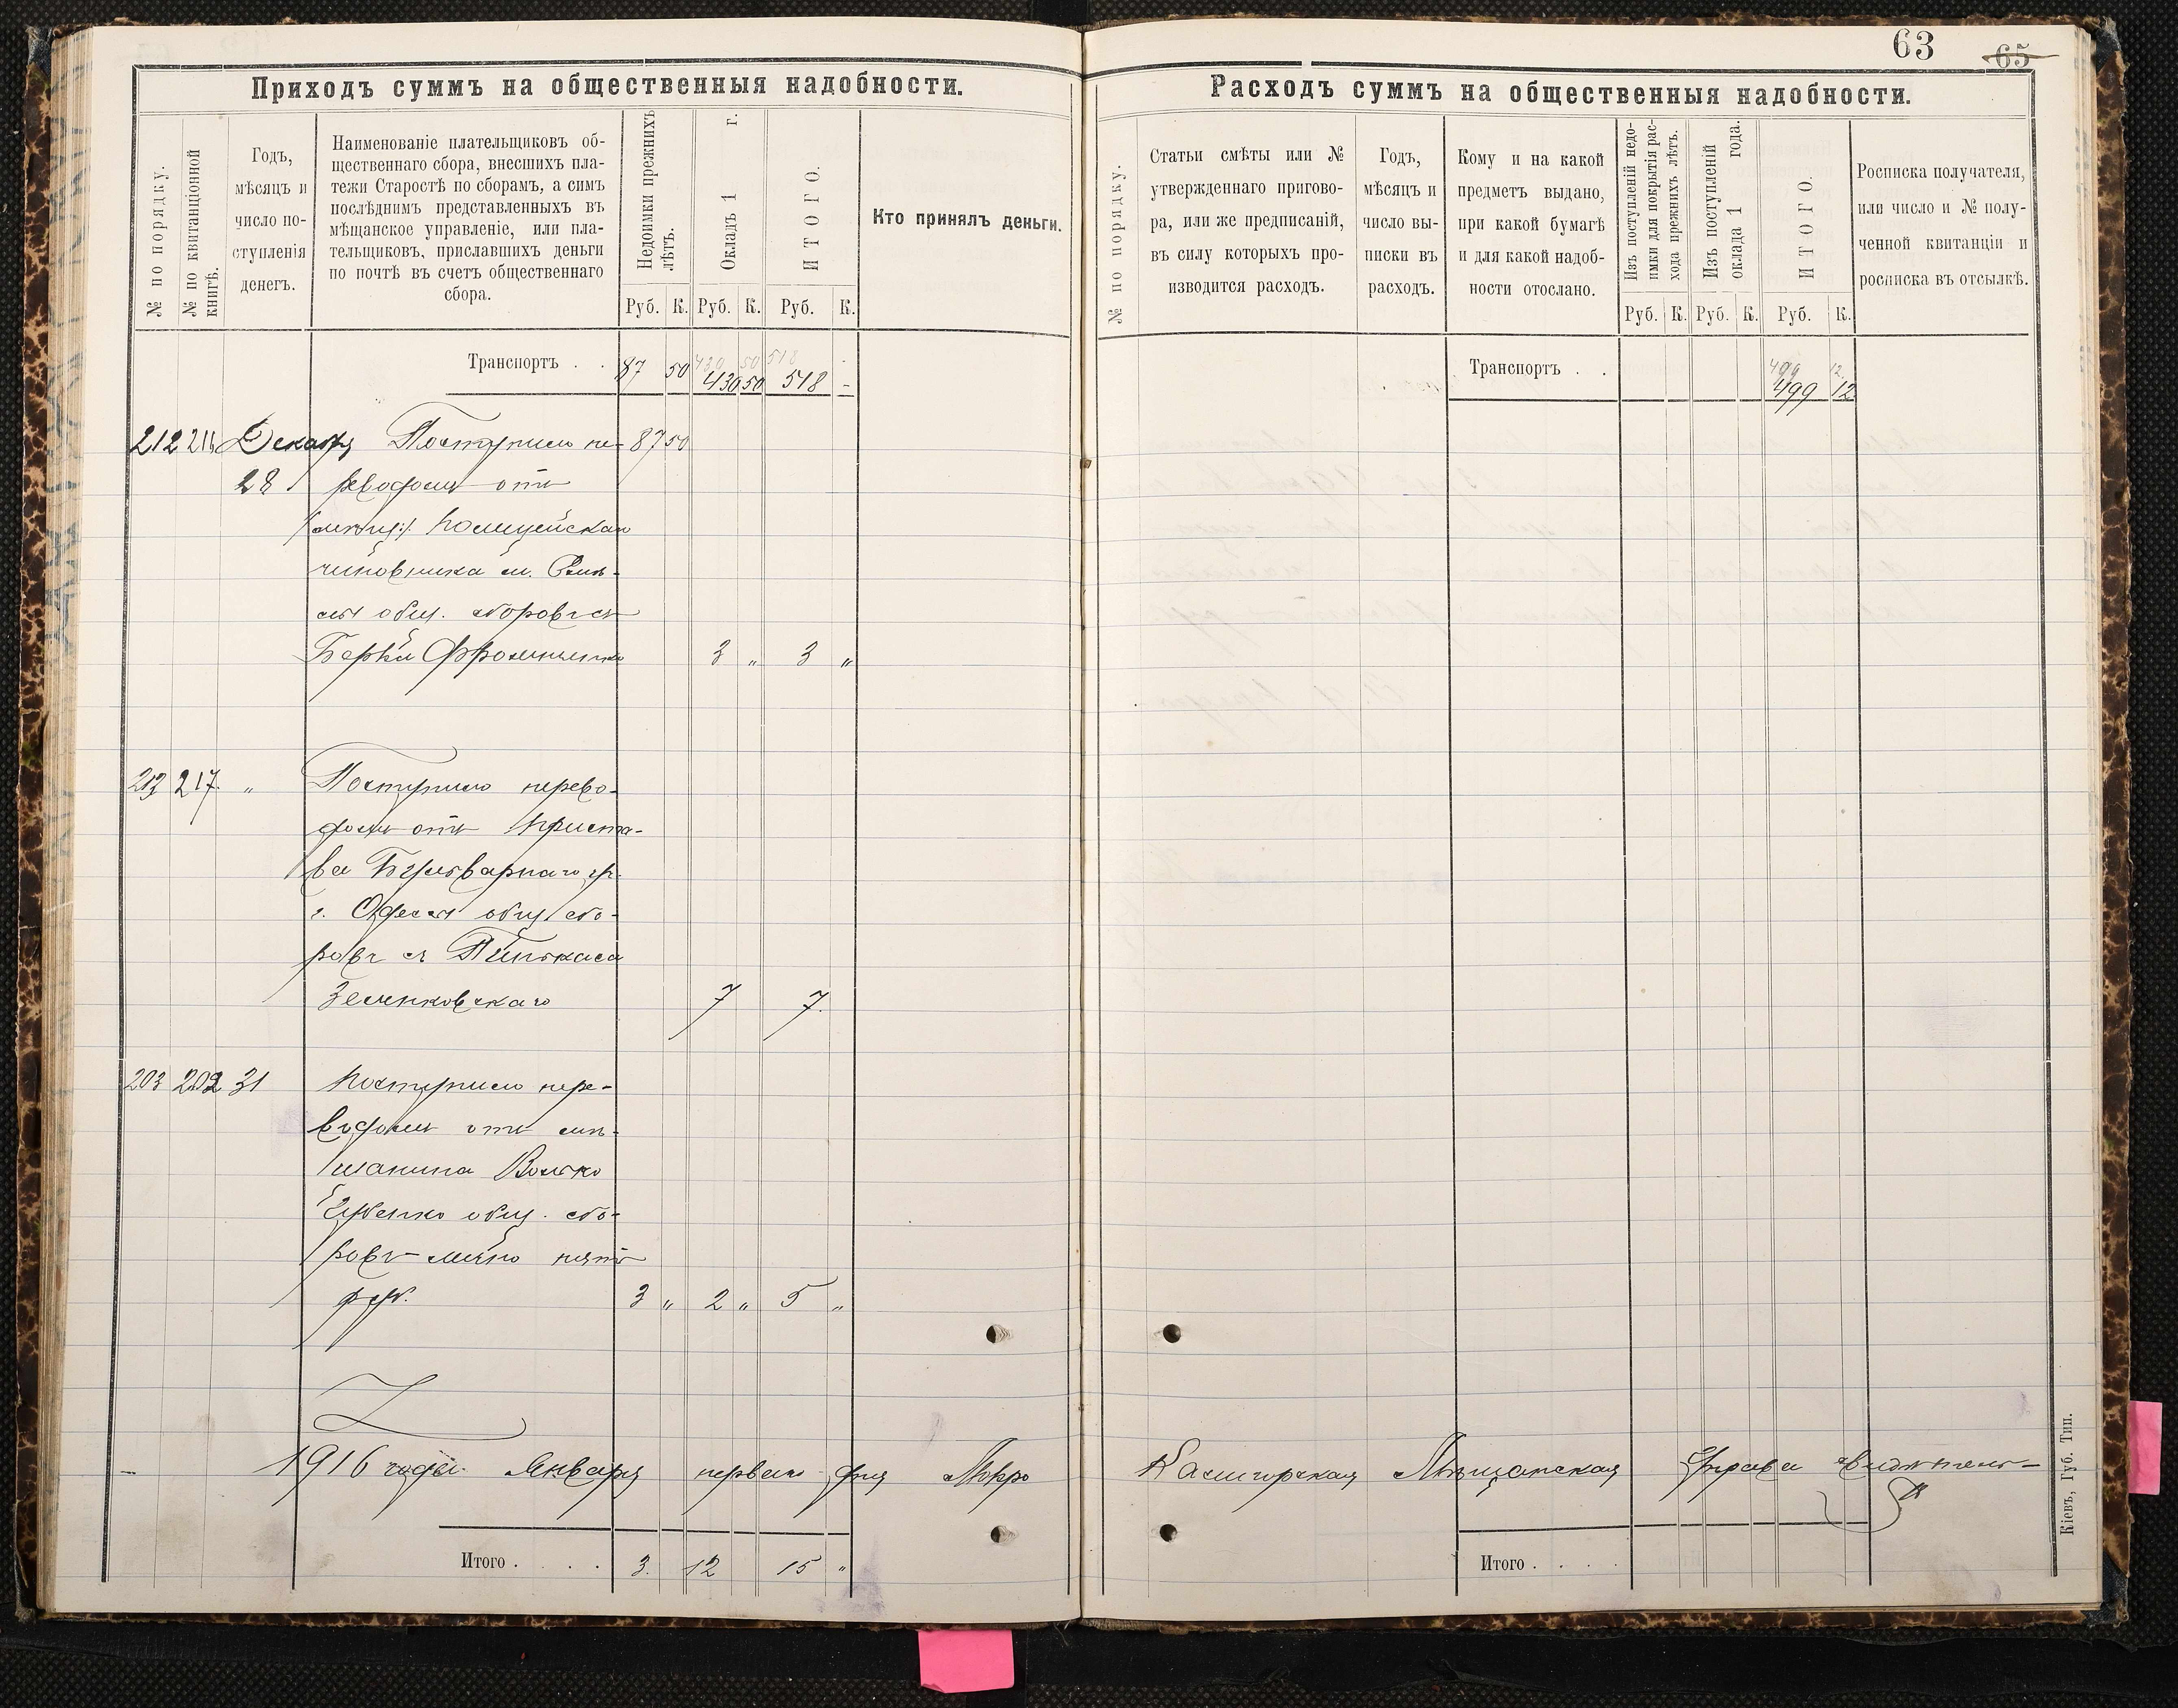 63
65
Приходъ суммъ на общественныя надобности.
№ по порядку.
№ по квитанціонной
книгѣ.
Годъ,
мѣсяцъ и
число по-
ступленія
денегъ.
Наименованіе плательщиковъ об-
щественнаго сбора, внесшихъ пла-
тежи Старостѣ по сборамъ, а симъ
послѣднимъ представленныхъ въ
мѣщанское управленіе, или пла-
тельщиковъ, приславшихъ деньги
по почтѣ въ счетъ общественнаго
сбора.
Недоимки прежнихъ
лѣтъ.
Окладъ 1 г.
ИТОГО.
Кто принялъ деньги.
Руб. К. Руб. К. Руб. К.
430 50 518 -
Транспортъ . . 87 50 430 50 518 -
212 216 Декабря Поступило пе- 87 50
28 реводомъ отъ
полицейскаго
чиновника м.
общ. сборовъ съ
Берки 3 „ 3 „
213 217. „ Поступило перево-
домъ отъ Приста-
ва Бульварнаго уч.
г. Одессы общ сбо-
ровъ съ Пинькаса
Зеленковскаго 7 7.
203 202 31 Поступило пере-
водомъ отъ мѣ-
щанина Волько
общ. сбо-
ровъ пять
руб. 3 „ 2 „ 5 „
1916 года Января перваго дня Мокро
Итого . . . . 3. 12 15 „
Расходъ суммъ на общественныя надобности.
№ по порядку.
Статьи смѣты или №
утвержденнаго пригово-
ра, или же предписаній,
въ силу которыхъ про-
изводится расходъ.
Годъ,
мѣсяцъ и
число вы-
писки въ
расходъ.
Кому и на какой
предметъ выдано,
при какой бумагѣ
и для какой надоб-
ности отослано.
Изъ поступленій недо-
имки для покрытія рас-
хода прежнихъ лѣтъ.
Изъ поступленій
оклада 1 года.
ИТОГО.
Росписка получателя,
или число и № полу-
ченной квитанціи и
росписка въ отсылкѣ.
Руб. К. Руб. К. Руб. К.
499 12.
Транспортъ . . 499 12
Калигорская Мѣщанская Управа свидѣтель-
Итого . . . .
Кіевъ, Губ. Тип.